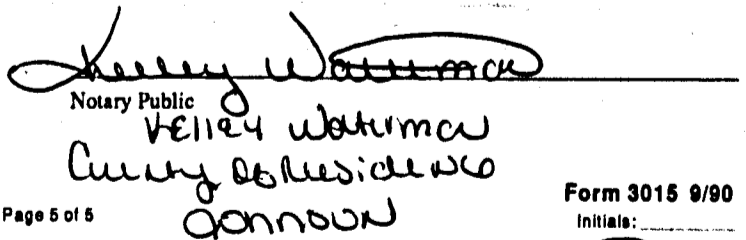 Kelley Waterman
Notary Public
Kelley Waterman
County of Residence
Johnson
Form 3015 9/90
Page 5 of 5
Initials: